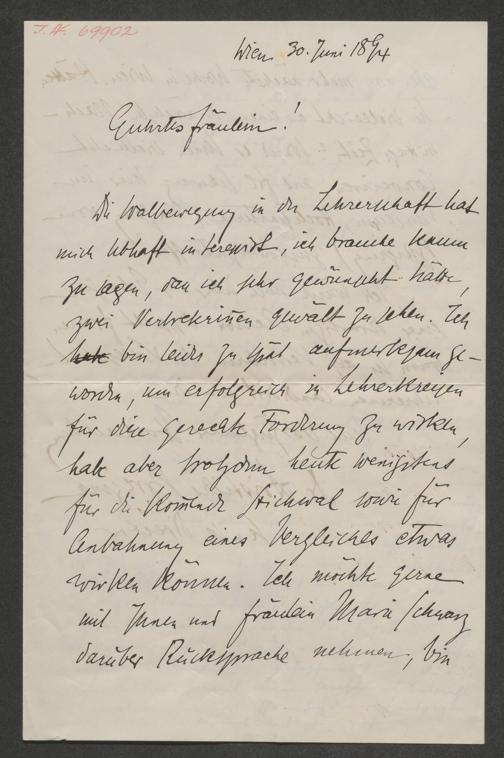 I.N. 69902
Wien 30. Juni 1894
Geehrtes Fräulein!
Die Walbewegung in der Lehrerschaft hat
mich lebhaft interessirt, ich brauche kaum
zu sagen, dass ich sehr gewünscht hätte,
zwei Vertreterinen gewält zu sehen. Ich
habe bin leider zu spät aufmerksam ge-
worden, um erfolgreich in Lehrerkreisen
für diese gerechte Forderung zu wirken,
habe aber trotzdem heute wenigstens
für die komende Stichwal sowie für
Anbahnung eines Vergleiches etwas
wirken können. Ich möchte gerne
mit Ihnen und Fräulein Marie Schwarz
darüber Rücksprache nehmen, bin